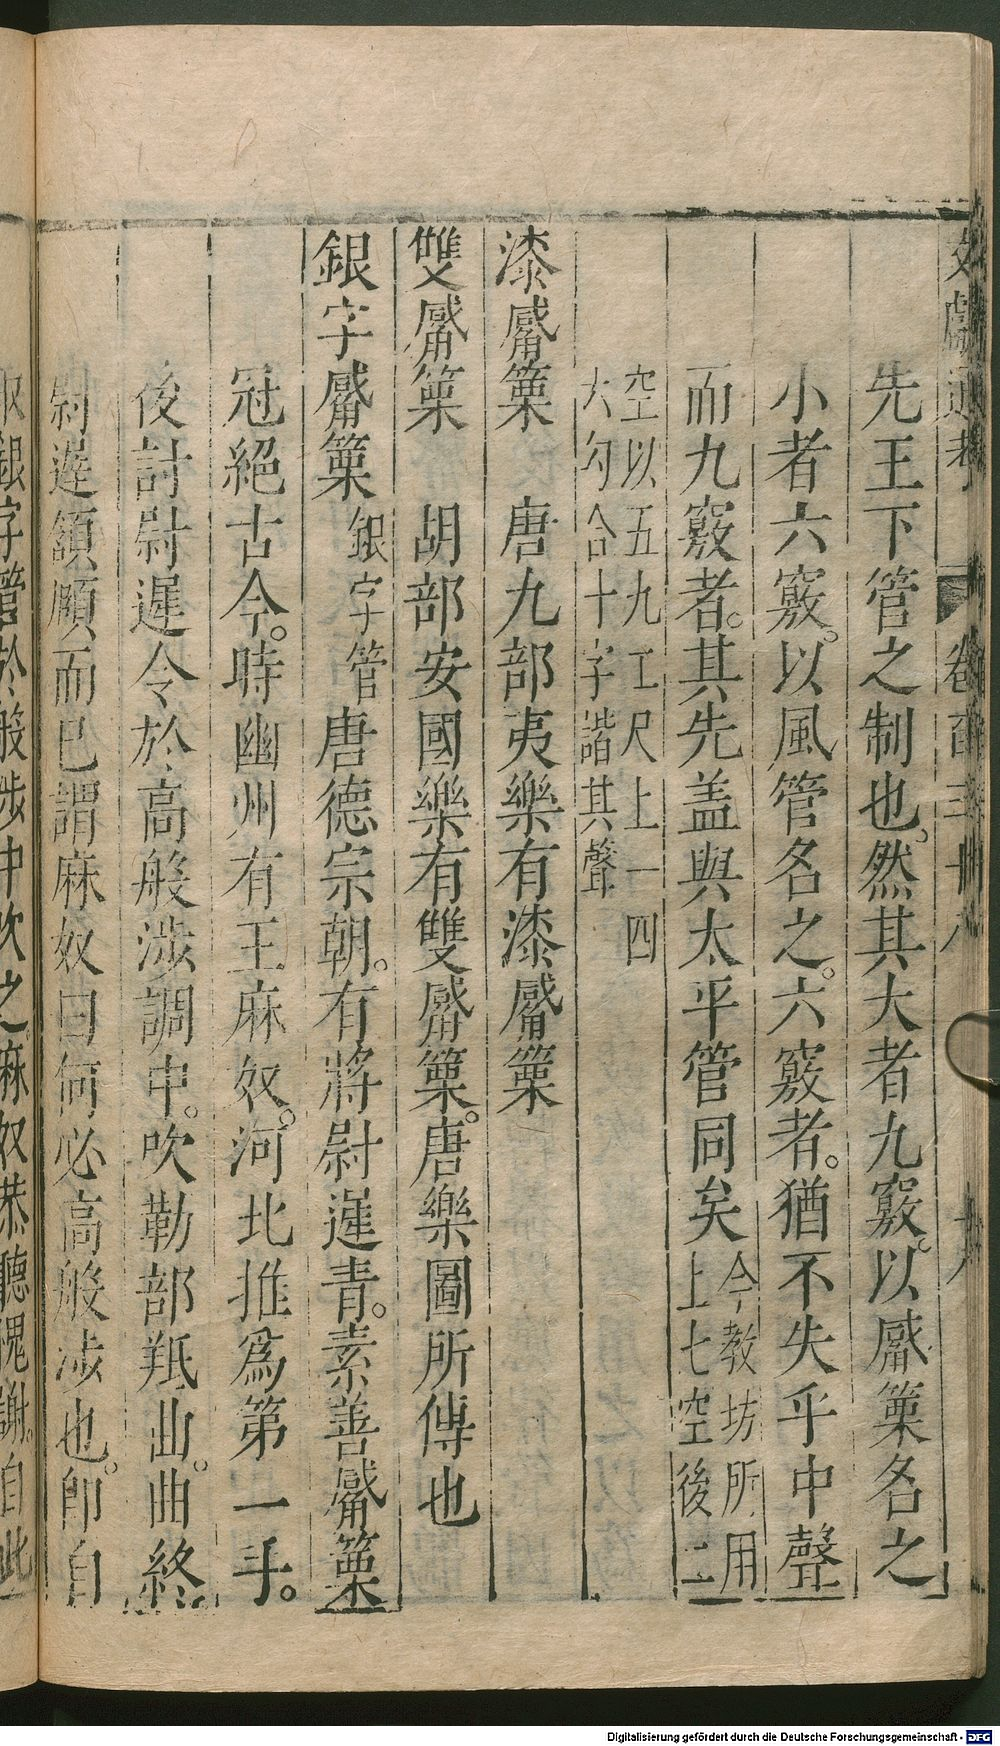 文獻通考 卷百三十八
先王下管之制也。然其大者九竅。以觱篥名之
小者六竅。以風管名之。六竅者。猶不失乎中聲
而九竅者。其先盖與太平管同矣今教坊所用上七空後二
空以五九工尺上一四六勾合十字諧其聲
漆觱篥 唐九部夷樂有漆觱篥
雙觱篥 胡部安國樂有雙觱篥。唐樂圖所傳也
銀字觱篥 銀字管 唐德宗朝。有將尉遲青。素善觱篥
冠絕古今。時幽州有王麻奴。河北推爲第一手。
後訪尉遲令於高般涉調中。吹勒部羝曲。曲終
尉遲頷頤而已謂麻奴曰何必高般涉也。卽自
取銀字管於般涉中吹之麻奴恭聽愧謝。自此
Digitalisierung gefördert durch die Deutsche Forschungsgemeinschaft - DFG